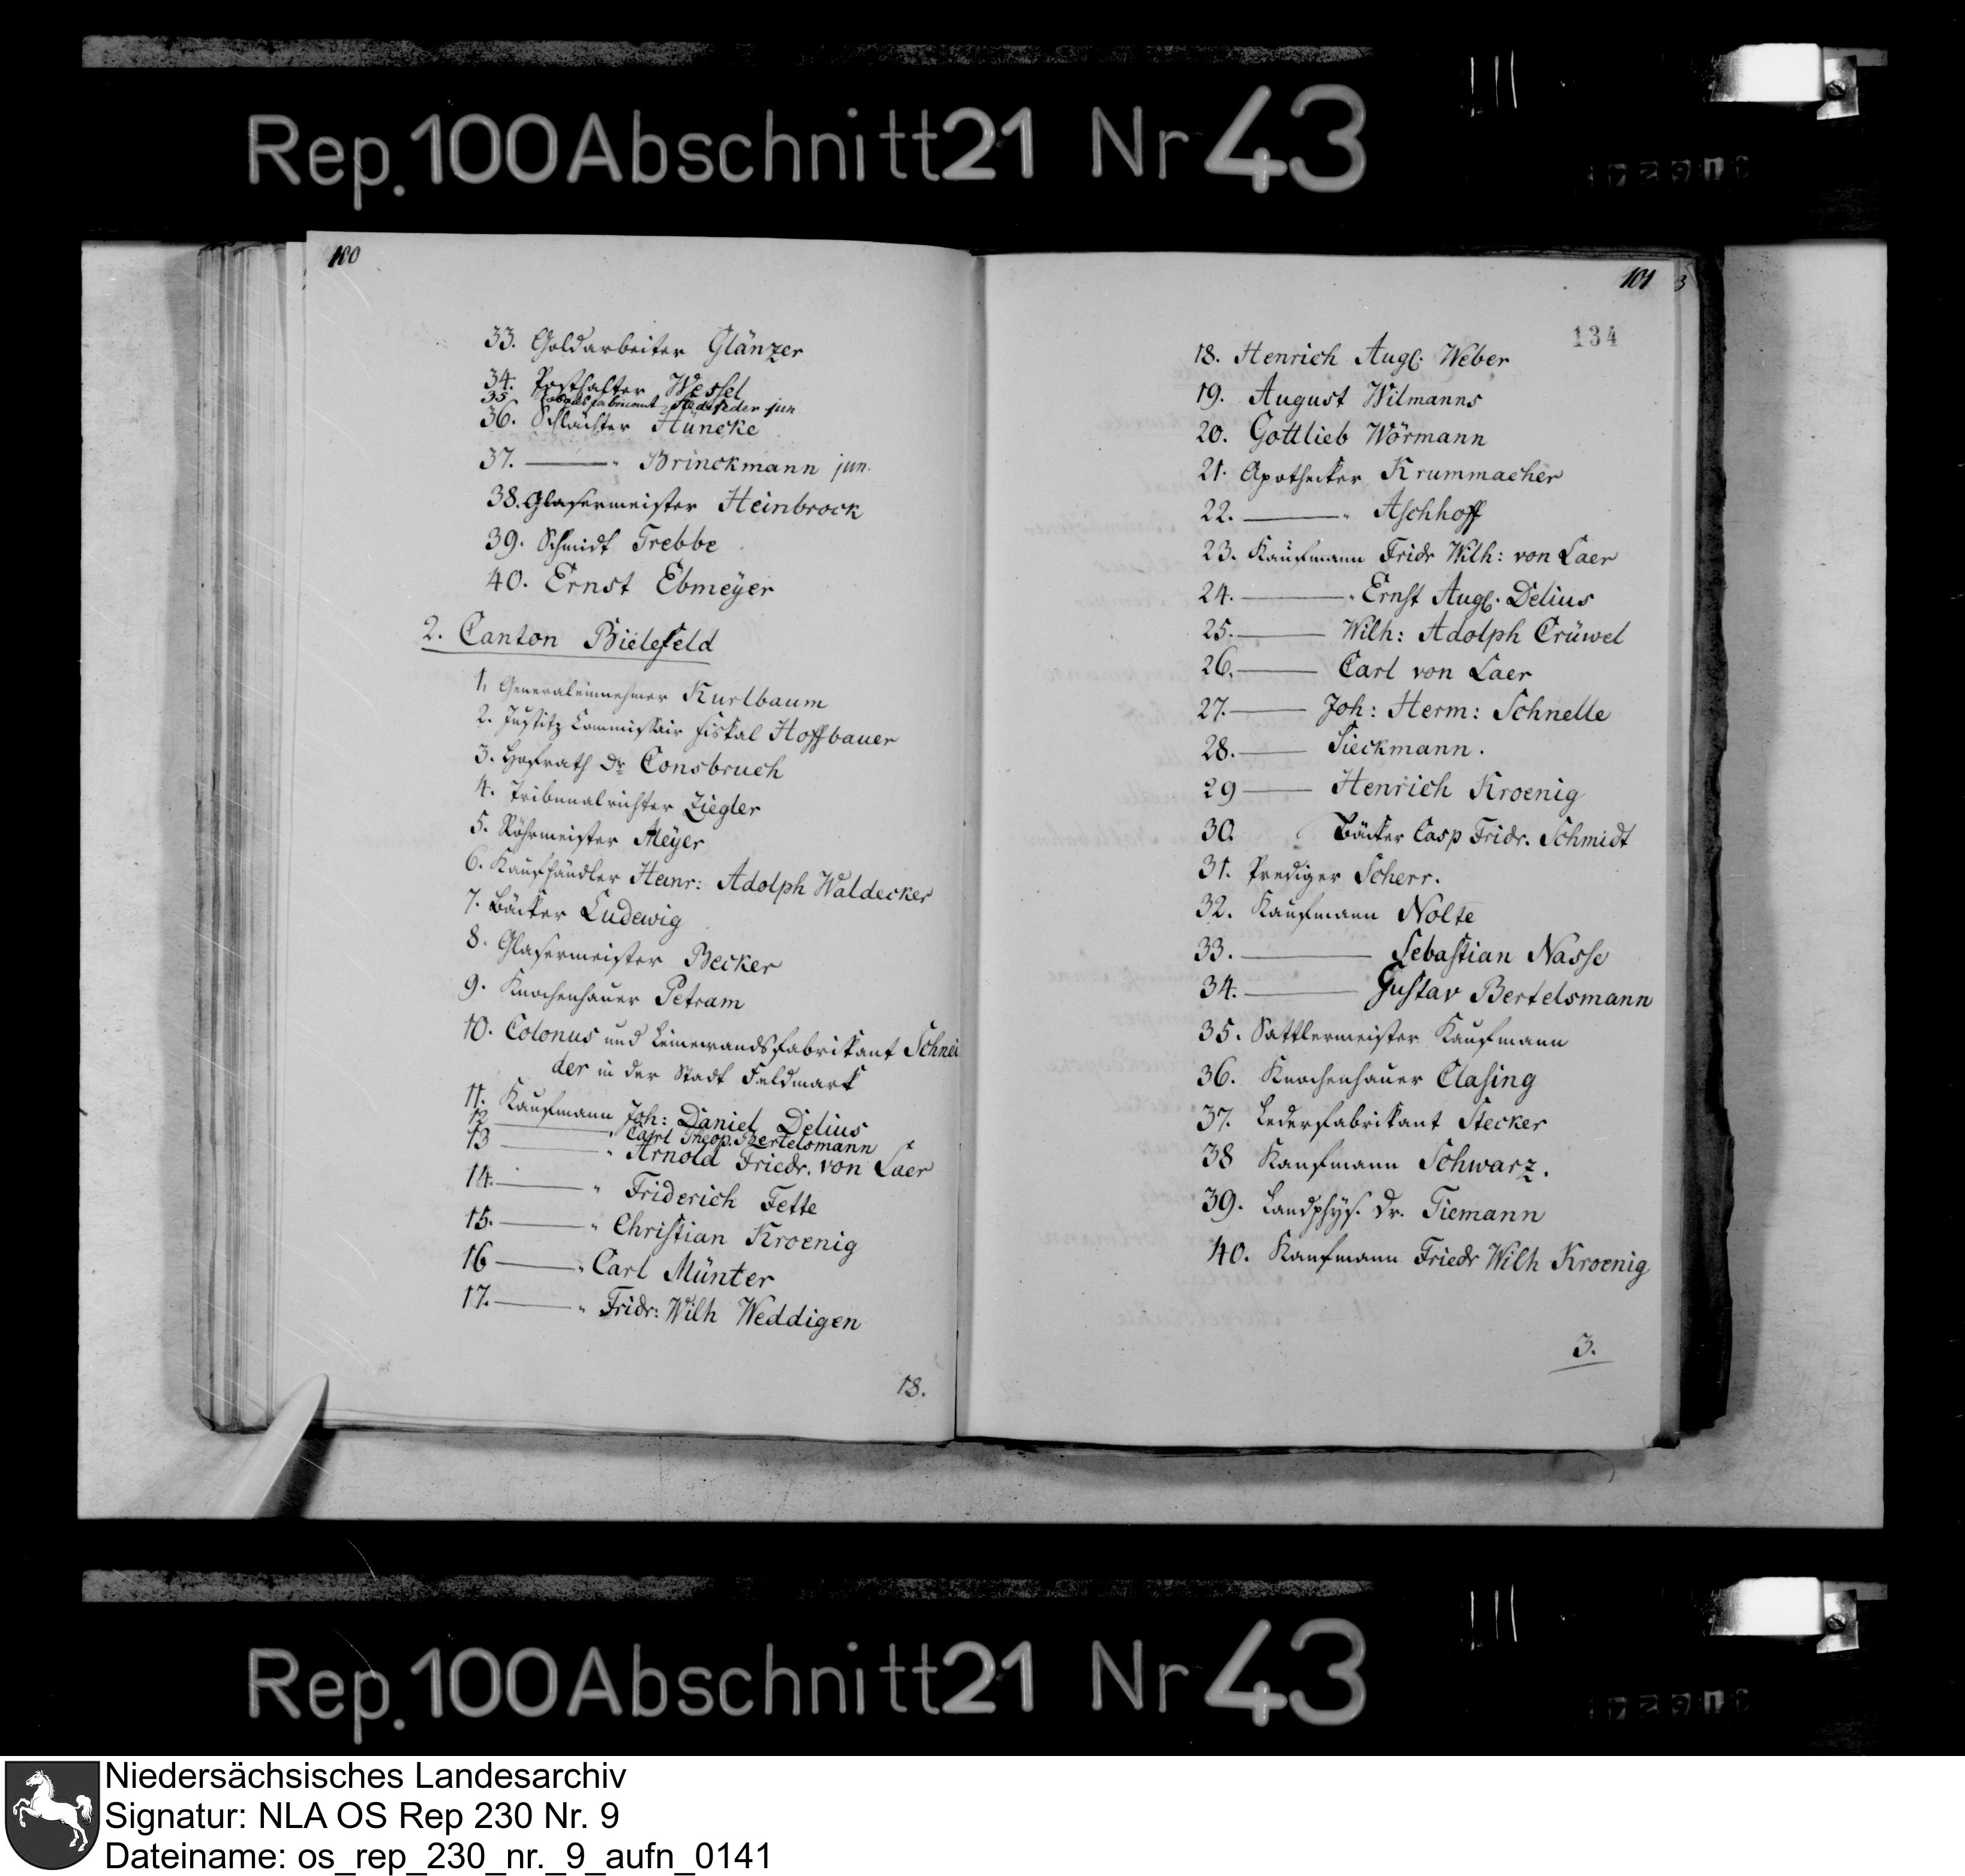 Rep. 100 Abschnitt 21 Nr 43
100
33. Goldarbeiter Glänzer
34. Posthalter Wessel
35 Tobacksfabricant Stedefeder jun
36. Schlächter Hüneke
37. ——— " Brinckmann jun.
38. Glasermeister Heinbrock
39. Schmidt Trebbe
40. Ernst Ebmeÿer
2. Canton Bielefeld
1. Generaleinnehmer Kurlbaum
2. Justitz Commissair fiskal Hoffbauer
3. Hofrath Dr Consbruch
4. Tribunalrichter Ziegler
5. Röhrmeister Meÿer
6. Kaufhändler Heinr: Adolph Waldecker
7. Bäcker Ludewig
8. Glasermeister Becker
9. Knochenhauer Petram
10. Colonus und Leinewandsfabrikant Schnei
der in der Stadt Feldmark
11. Kaufmann Joh: Daniel Delius
12 ——— " Carl Theop. Bertelsmann
13 ——— " Arnold Friedr. von Laer
14. ——— " Friderich Fette
15. ——— " Christian Kroenig
16 ——— " Carl Münter
17. ——— " Fridr: Wilh Weddigen
18.
101
3
134
18. Henrich Augs. Weber
19. August Wilmanns
20. Gottlieb Wörmann
21. Apotheker Krummacher
22. ——— " Aschhoff
23. Kaufmann Fridr Wilh: von Laer
24. ——— " Ernst Augs. Delius
25. ——— Wilh: Adolph Crüwel
26. ——— Carl von Laer
27. ——— Joh: Herm: Schnelle
28. ——— Sieckmann.
29 ——— Henrich Kroenig
30. Bäcker Casp Fridr. Schmidt
31. Prediger Scherr.
32. Kaufmann Nolte
33. ——— Sebastian Nasse
34. ——— Gustav Bertelsmann
35. Sattlermeister Kaufmann
36. Knochenhauer Clasing
37. Lederfabrikant Stecker
38 Kaufmann Schwarz.
39. Landphys. Dr. Tiemann
40. Kaufmann Friedr Wilh Kroenig
3.
Rep. 100 Abschnitt 21 Nr 43
Niedersächsisches Landesarchiv
Signatur: NLA OS Rep 230 Nr. 9
Dateiname: os_rep_230_nr._9_aufn_0141